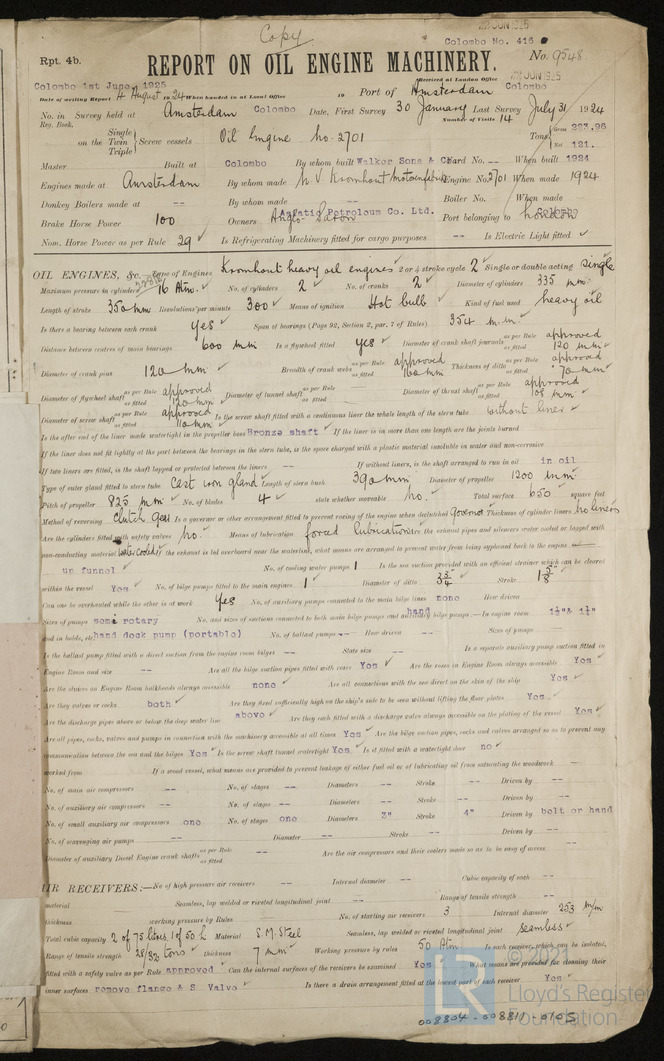 Copy
22 JUN 1925
Colombo No. 416
Rpt. 4b.
REPORT ON OIL ENGINE MACHINERY.
No. 9548
Received at London Office
22 JUN 1925
Colombo 1st June, 1925
Date of writing Report 4 August 1924 When handed in at Local Office 19 Port of Amsterdam Colombo
No. in Survey held at Amsterdam Colombo Date, First Survey 30 January Last Survey July 31 1924
Reg. Book. Number of Visits 14
on the Single Twin Triple Screw vessels Oil Engine No-2701 Tons Gross 223.96 Net 121.
Master Built at Colombo By whom built Walker Sons & Co Yard No. -- When built 1924
Engines made at Amsterdam By whom made N V Kromhout Motorenfabriek Engine No. 2701 When made 1924
Donkey Boilers made at -- By whom made -- Boiler No. When made
Brake Horse Power 100 Owners Anglo Saxon Asiatic Petroleum Co. Ltd. Port belonging to London Colombo
Nom. Horse Power as per Rule 29 Is Refrigerating Machinery fitted for cargo purposes -- Is Electric Light fitted
OIL ENGINES, &c. Type of Engines Kromhout heavy oil engines 2 or 4 stroke cycle 2 Single or double acting single
Maximum pressure in cylinders 16 Atm. No. of cylinders 2 No. of cranks 2 Diameter of cylinders 335 mm
Length of stroke 350 mm Revolutions per minute 300 Means of ignition Hot bulb Kind of fuel used heavy oil
Is there a bearing between each crank yes Span of bearings (Page 92, Section 2, par. 7 of Rules) 354 m.m.
Distance between centres of main bearings 600 mm Is a flywheel fitted yes Diameter of crank shaft journals as per Rule approved as fitted 120 mm
Diameter of crank pins 120 mm Breadth of crank webs as per Rule approved as fitted 160 mm Thickness of ditto as per Rule approved as fitted 70 mm
Diameter of flywheel shaft as per Rule approved as fitted 120 mm Diameter of tunnel shaft as per Rule as fitted Diameter of thrust shaft as per Rule approved as fitted 108 mm
Diameter of screw shaft as per Rule approved as fitted 110 mm Is the screw shaft fitted with a continuous liner the whole length of the stern tube without liner
Is the after end of the liner made watertight in the propeller boss Bronze shaft If the liner is in more than one length are the joints burned
If the liner does not fit tightly at the part between the bearings in the stern tube, is the space charged with a plastic material insoluble in water and non-corrosive
If two liners are fitted, is the shaft lapped or protected between the liners -- If without liners, is the shaft arranged to run in oil in oil
Type of outer gland fitted to stern tube Cast iron gland Length of stern bush 390 mm Diameter of propeller 1200 mm
Pitch of propeller 825 mm No. of blades 4 state whether moveable No. Total surface 650 square feet
Method of reversing Clutch Gear Is a governor or other arrangement fitted to prevent racing of the engine when declutched Governor Thickness of cylinder liners No liners
Are the cylinders fitted with safety valves No. Means of lubrication forced lubrication Are the exhaust pipes and silencers water cooled or lagged with
non-conducting material water cooled If the exhaust is led overboard near the waterline, what means are arranged to prevent water from being syphoned back to the engine
up funnel No. of cooling water pumps 1 Is the sea suction provided with an efficient strainer which can be cleared
within the vessel Yes No. of bilge pumps fitted to the main engines 1 Diameter of ditto Stroke
Can one be overhauled while the other is at work Yes No. of auxiliary pumps connected to the main bilge lines none How driven
Sizes of pumps semi rotary No. and sizes of suctions connected to both main bilge pumps and auxiliary bilge pumps:—In engine room hand 1½"& 1½"
and in holds, etc. hand deck pump (portable) No. of ballast pumps -- How driven Sizes of pumps
Is the ballast pump fitted with a direct suction from the engine room bilges -- State size -- Is a separate auxiliary pump suction fitted in
Engine Room and size -- Are all the bilge suction pipes fitted with roses Yes Are the roses in Engine Room always accessible Yes
Are the sluices on Engine Room bulkheads always accessible none Are all connections with the sea direct on the skin of the ship Yes
Are they valves or cocks both Are they fixed sufficiently high on the ship's side to be seen without lifting the floor plates Yes
Are the discharge pipes above or below the deep water line above Are they each fitted with a discharge valve always accessible on the plating of the vessel Yes
Are all pipes, cocks, valves and pumps in connection with the machinery accessible at all times Yes Are the bilge suction pipes, cocks and valves arranged so as to prevent any
communication between the sea and the bilges Yes Is the screw shaft tunnel watertight Yes Is it fitted with a watertight door no
worked from If a wood vessel, what means are provided to prevent leakage of either fuel oil or of lubricating oil from saturating the woodwork --
No. of main air compressors -- No. of stages -- Diameters -- Stroke -- Driven by --
No. of auxiliary air compressors -- No. of stages -- Diameters -- Stroke -- Driven by --
No. of small auxiliary air compressors one No. of stages one Diameters 3" Stroke 4" Driven by belt or hand
No. of scavenging air pumps -- Diameter -- Stroke -- Driven by --
Diameter of auxiliary Diesel Engine crank shafts as per Rule as fitted -- Are the air compressors and their coolers made so as to be easy of access --
AIR RECEIVERS:—No. of high pressure air receivers -- Internal diameter -- Cubic capacity of each --
material Seamless, lap welded or riveted longitudinal joint -- Range of tensile strength --
thickness working pressure by Rules No. of starting air receivers 3 Internal diameter 253 m/m
Total cubic capacity 2 of 75 litres, 1 of 50 L Material S.M. Steel Seamless, lap welded or riveted longitudinal joint seamless
Range of tensile strength 28/32 tons thickness 7 mm Working pressure by rules 50 Atm. Is each receiver, which can be isolated,
fitted with a safety valve as per Rule approved Can the internal surfaces of the receivers be examined Yes What means are provided for cleaning their
inner surfaces remove flange & S. Valve Is there a drain arrangement fitted at the lowest part of each receiver Yes
© 2021
LR
Lloyd's Register
Foundation
008804-008811-0105